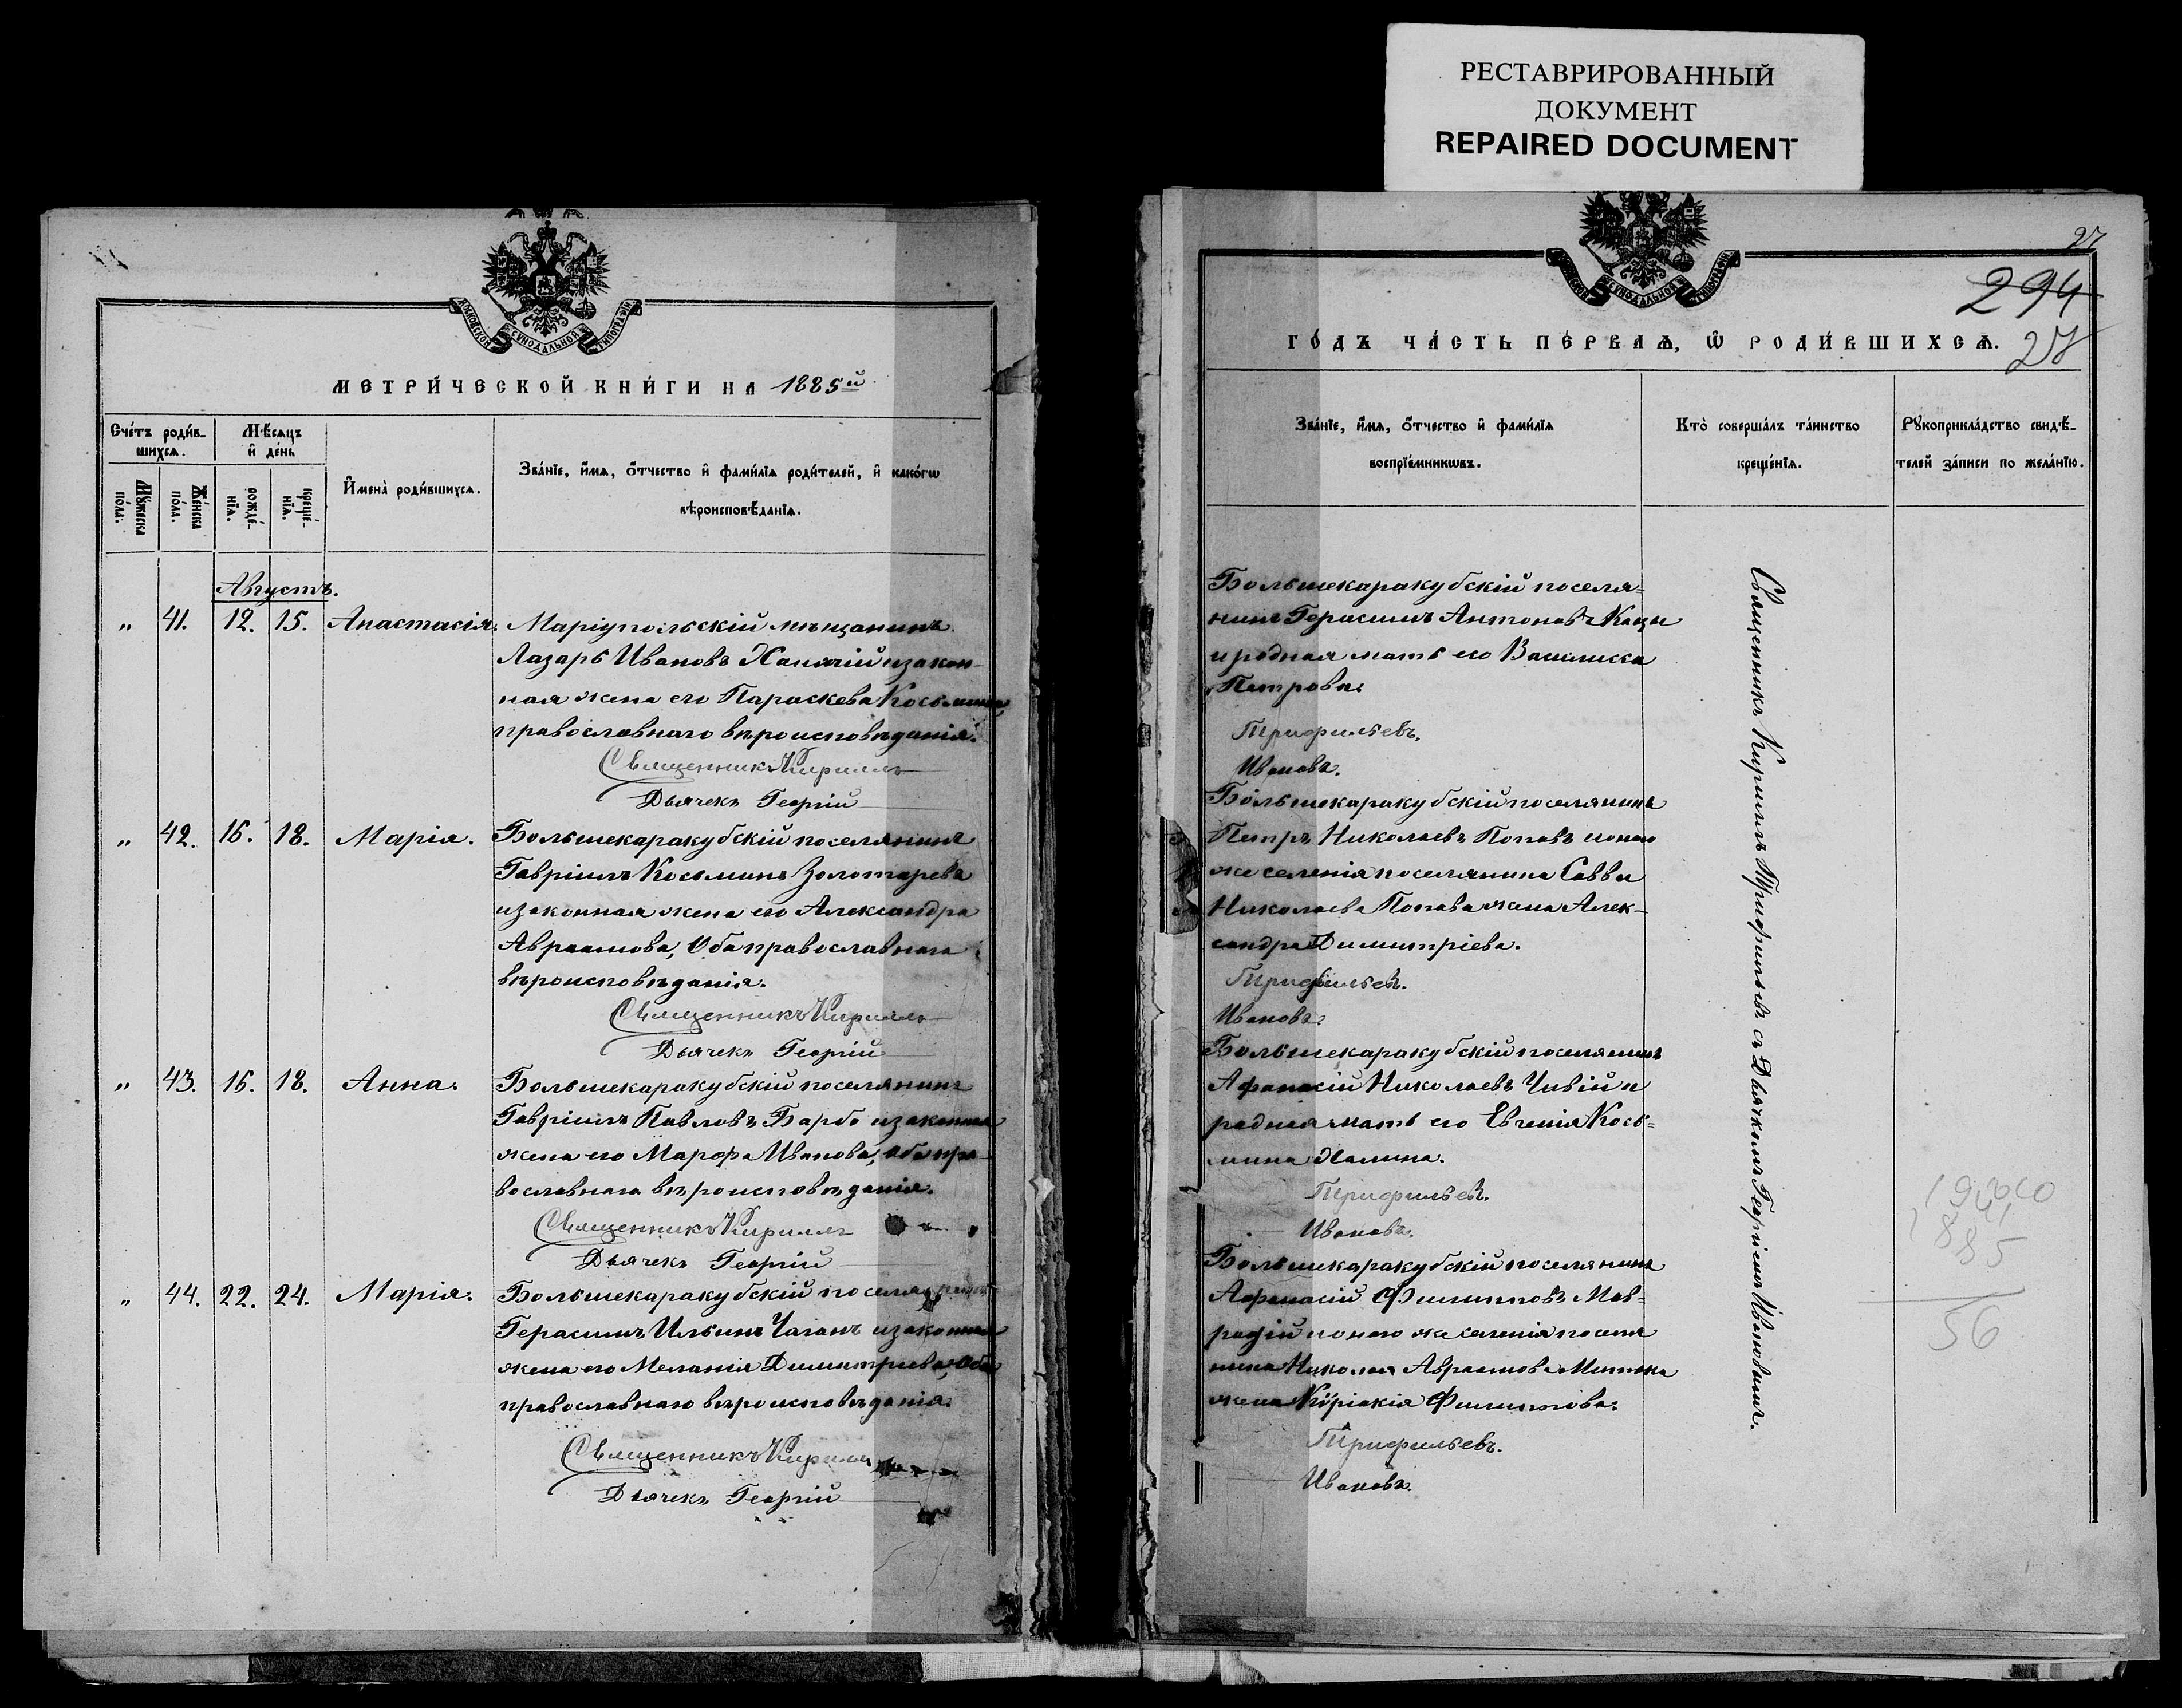 РЕСТАВРИРОВАННЫЙ
ДОКУМЕНТ
REPAIRED DOCUMENT
МЕТРИ́ЧЕСКОЙ КНИ́ГИ НА 1885й
Сче́тъ роди́в-
шихсѧ.
Мѣ́сѧцъ
и҆ де́нь
Мꙋ́жеска
по́ла.
Же́нска
по́ла.
рожде́-
нїѧ.
креще́-
нїѧ.
И҆мена̀ роди́вшихсѧ.
Зва́нїе, и҆́мѧ, ѻ҆́тчество и҆ фами́лїѧ роди́телей, и҆ како́гѡ
вѣроисповѣ́данїѧ.
Августъ.
" 41. 12. 15. Анастасія.
Маріупольскій мѣщанинъ
Лазарь Ивановъ Ханачій и закон-
ная жена его Параскева Косьмина,
православнаго вѣроисповѣданія.
Священникъ Кириллъ
Дьячекъ Георгій
" 42. 16. 18. Марія.
Большекаракубскій поселянинъ
Гавріилъ Косьминъ Золотаревъ
и законная жена его Александра
Авраамова, Оба православнаго
вѣроисповѣданія.
Священникъ Кириллъ
Дьячекъ Георгій
" 43. 16. 18. Анна.
Большекаракубскій поселянинъ
Гавріилъ Павловъ Барбо и законная
жена его Марфа Иванова, Оба пра-
вославнаго вѣроисповѣданія.
Священникъ Кириллъ
Дьячекъ Георгій
" 44. 22. 24. Марія.
Большекаракубскій поселянинъ
Герасимъ Ильинъ Чаганъ и законная
жена его Меланія Димитріева, Оба
православнаго вѣроисповѣданія.
Священникъ Кириллъ
Дьячекъ Георгій
27
294
27
ГО́ДЪ ЧА́СТЬ ПЕ́РВАѦ, Ѡ҆ РОДИ́ВШИХСѦ.
Зва́нїе, и҆́мѧ, ѻ҆́тчество и҆ фами́лїѧ
воспрїе́мникѡвъ.
Кто̀ соверша́лъ та́инство
креще́нїѧ.
Рꙋкоприкла́дство свидѣ́-
телей за́писи по жела́нїю.
Большекаракубскій поселя-
нинъ Герасимъ Антоновъ Кацы
и родная мать его Василисса
Петрова.
Трифильевъ.
Ивановъ.
Большекаракубскій поселянинъ
Петръ Николаевъ Поповъ и оного
же селенія поселянина Саввы
Николаева Попова жена Алек-
сандра Димитріева.
Трифильевъ.
Ивановъ.
Большекаракубскій поселянинъ
Афанасій Николаевъ Чивій и
родная мать его Евгенія Кось-
мина Халина.
Трифильевъ.
Ивановъ.
Большекаракубскій поселянинъ
Афанасій Филипповъ Мав-
родій и оного же селенія поселя
нина Николая Авраамова
жена Кѵріакія Филиппова.
Трифильевъ.
Ивановъ.
Священникъ Кириллъ Трифильевъ съ Дьячкомъ Георгіемъ Ивановымъ.
1885
56